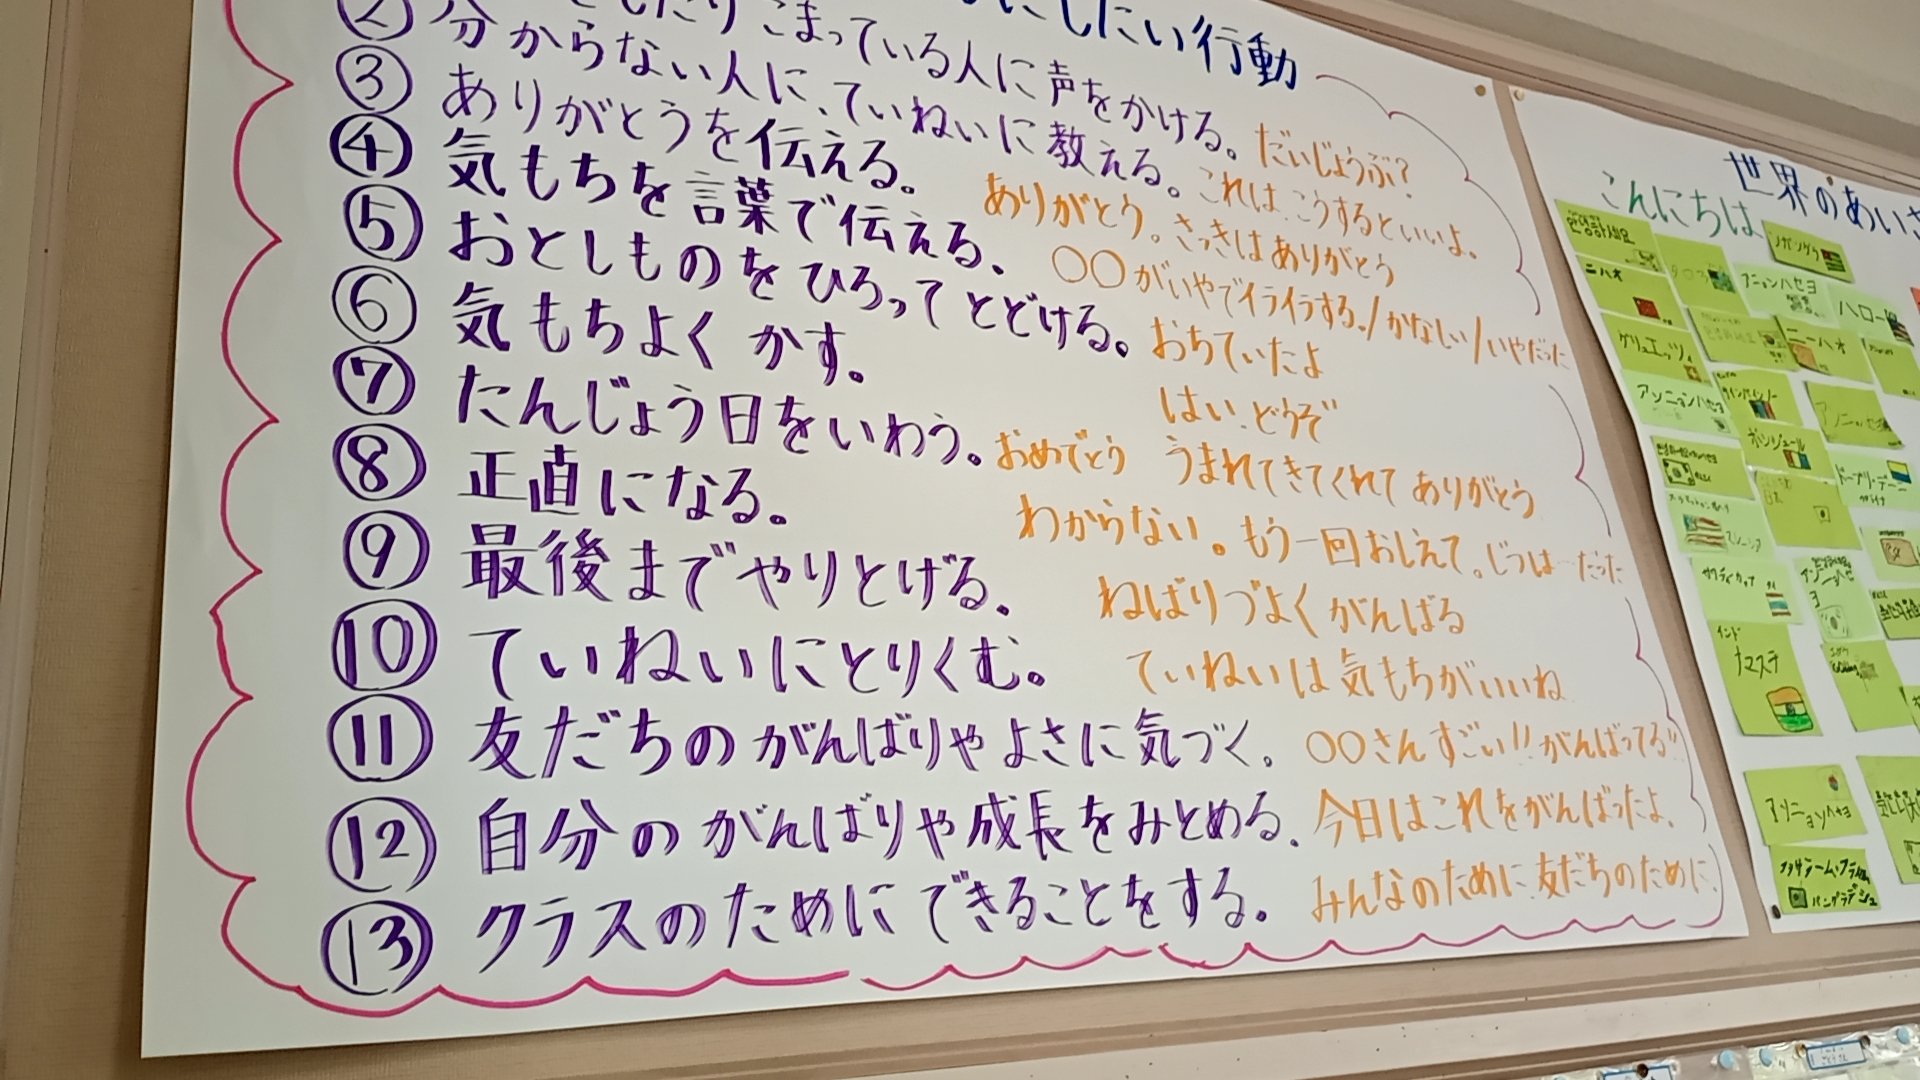 にしたい行動
こまっている人に声をかける。だいじょうぶ?
② 分からない人に、ていねいに教える。これは、こうするといいよ。
③ ありがとうを伝える。ありがとう。さっきはありがとう
④ 気もちを言葉で伝える。〇〇がいやでイライラする。/かなしい/いやだった
⑤ おとしものをひろってとどける。おちていたよ
⑥ 気もちよくかす。はい、どうぞ
⑦ たんじょう日をいわう。おめでとう うまれてきてくれてありがとう
⑧ 正直になる。わからない。もう一回おしえて。じつは…だった
⑨ 最後までやりとげる。ねばりづよくがんばる
⑩ ていねいにとりくむ。ていねいは気もちがいいね
⑪ 友だちのがんばりやよさに気づく。〇〇さんすごい!!がんばってる!!
⑫ 自分のがんばりや成長をみとめる。今日はこれをがんばったよ。
⑬ クラスのためにできることをする。みんなのために、友だちのために。
世界のあいさ
こんにちは
안녕하세요
ニハオ
アニョンハセヨ
ハロー
ニーハオ
アンニョンハセヨ
ボンジュール
インド
ナマステ